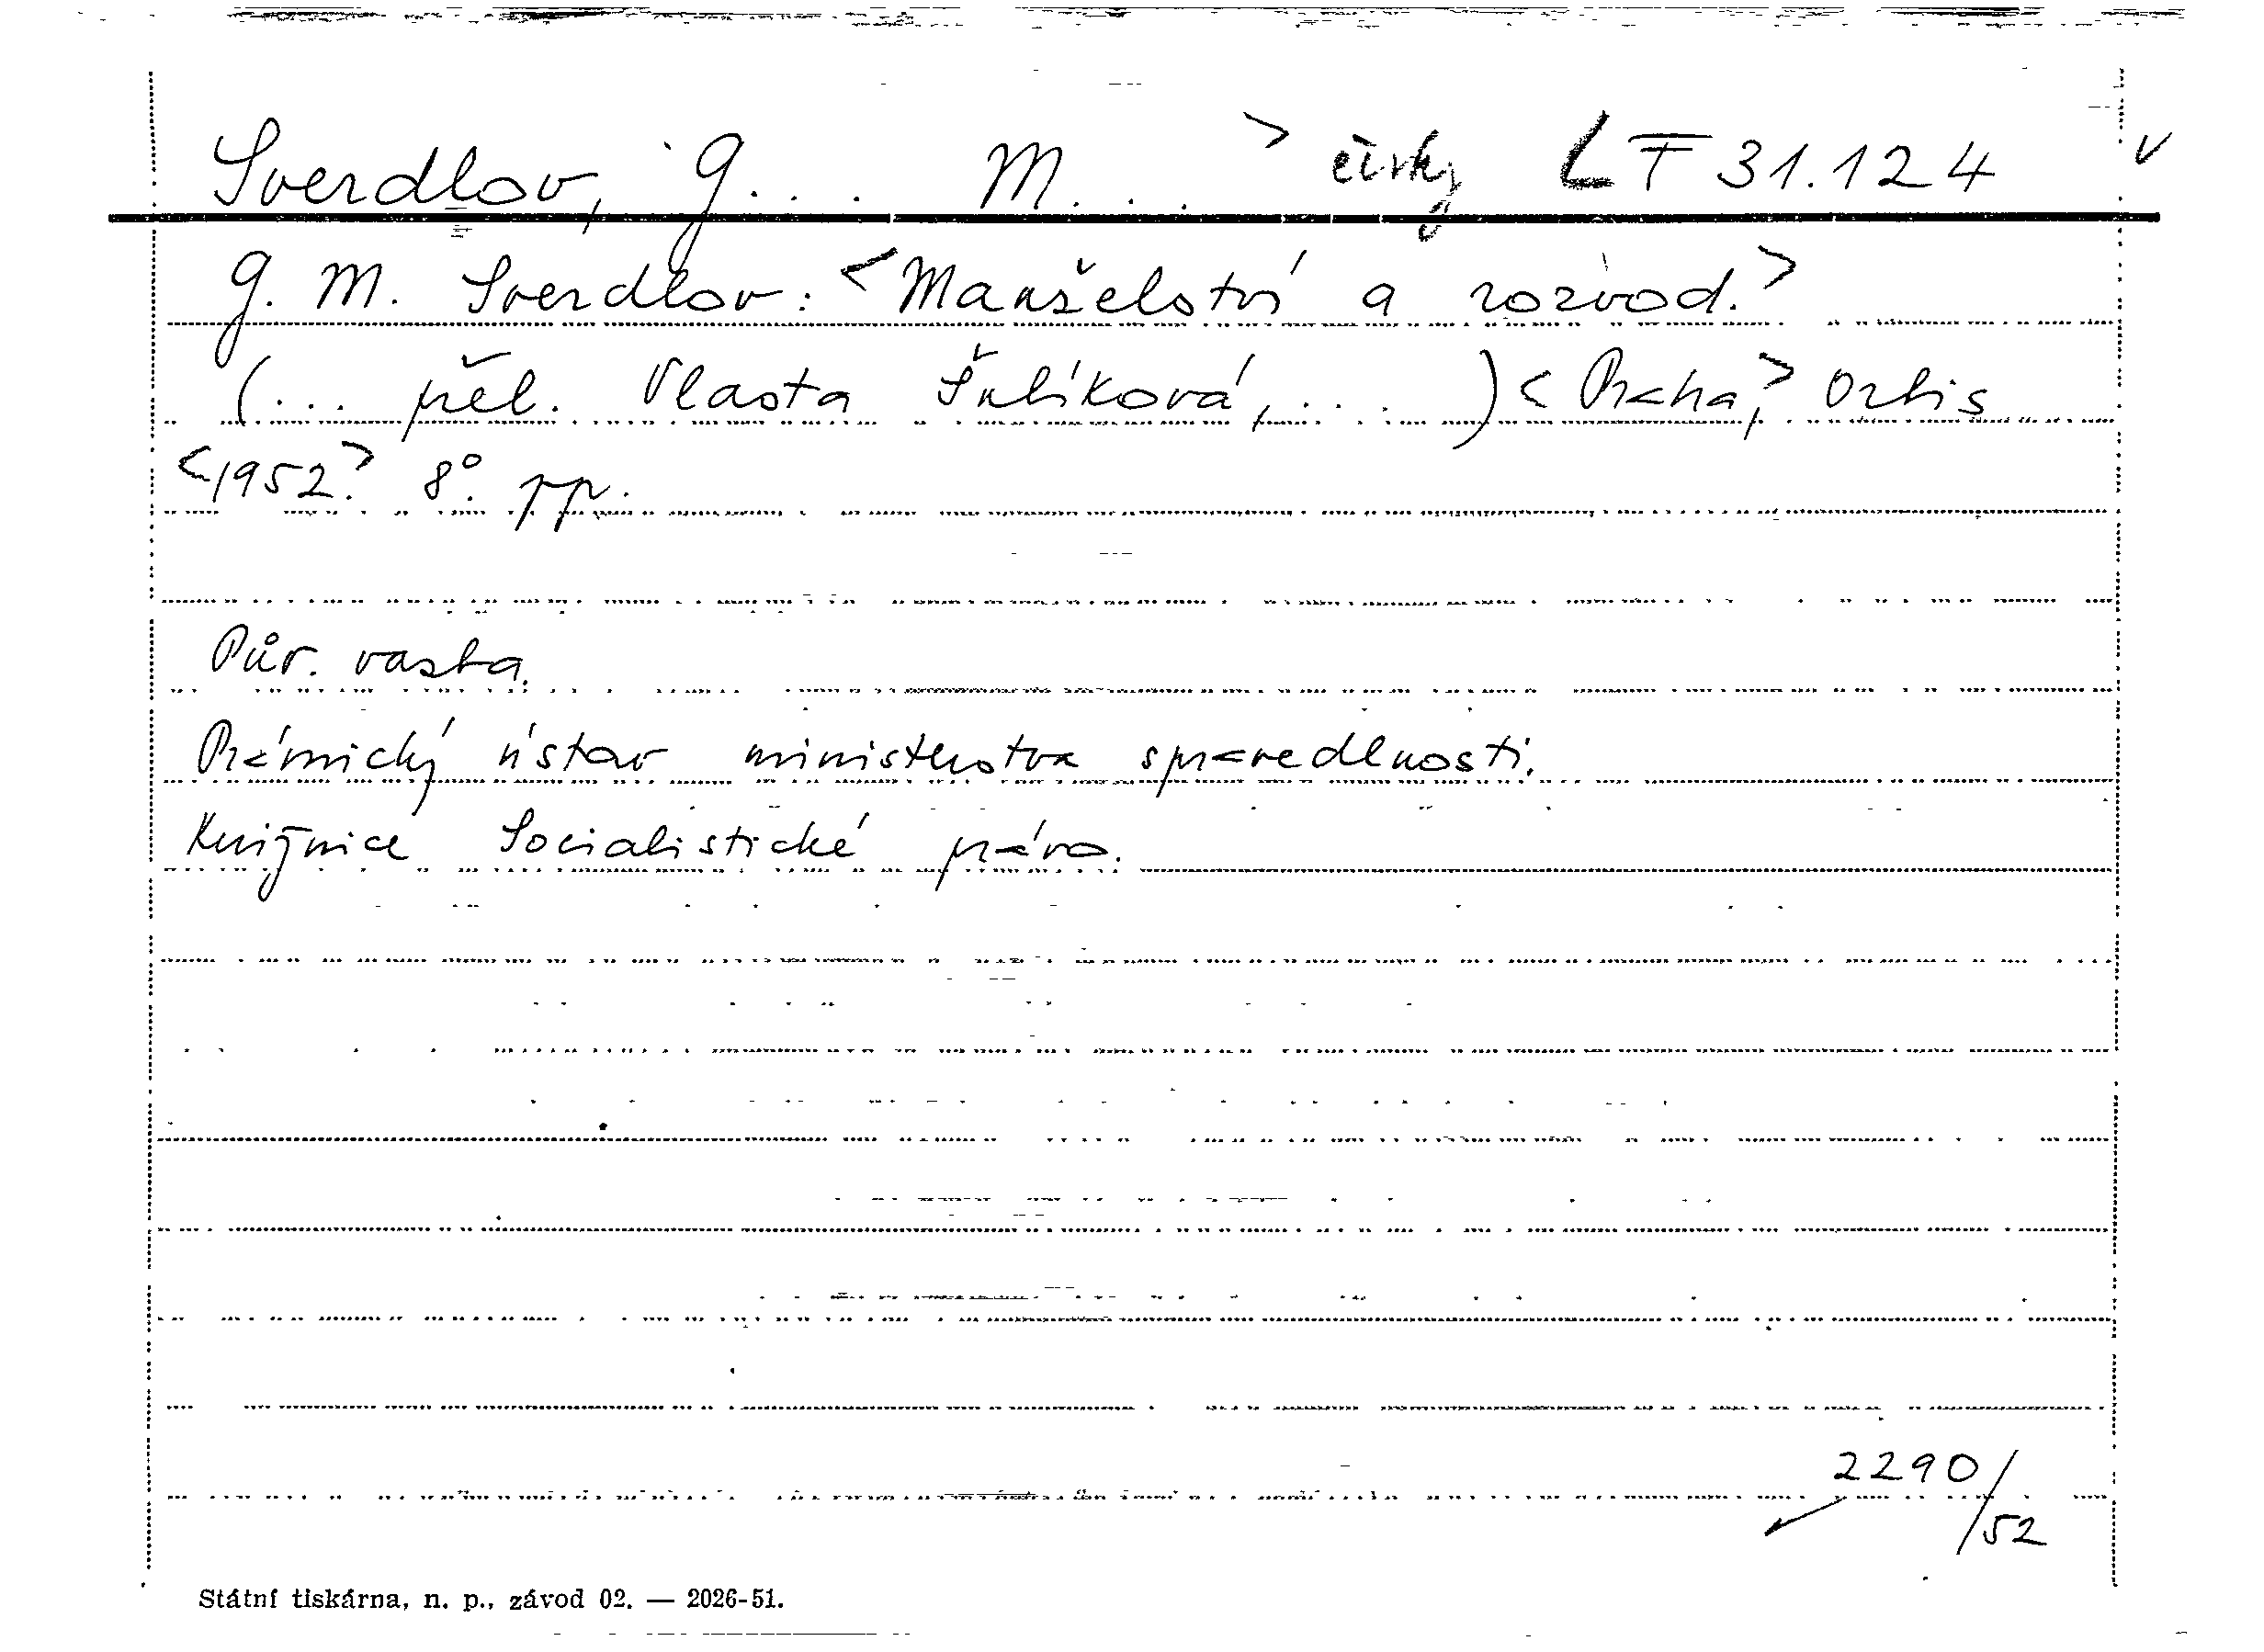 Sverdlov, G... M... > čísky LT 31.124 v
G. M. Sverdlov: <Manželství a rozvod.>
(... přel. Vlasta Šulíková, ... ) <Praha,> Orbis
<1952.> 8°. pp.
Pův. vazba.
Právnický ústav ministerstva spravedlnosti.
Knižnice Socialistické právo.
2290/
52
Státní tiskárna, n. p., závod 02. — 2026-51.